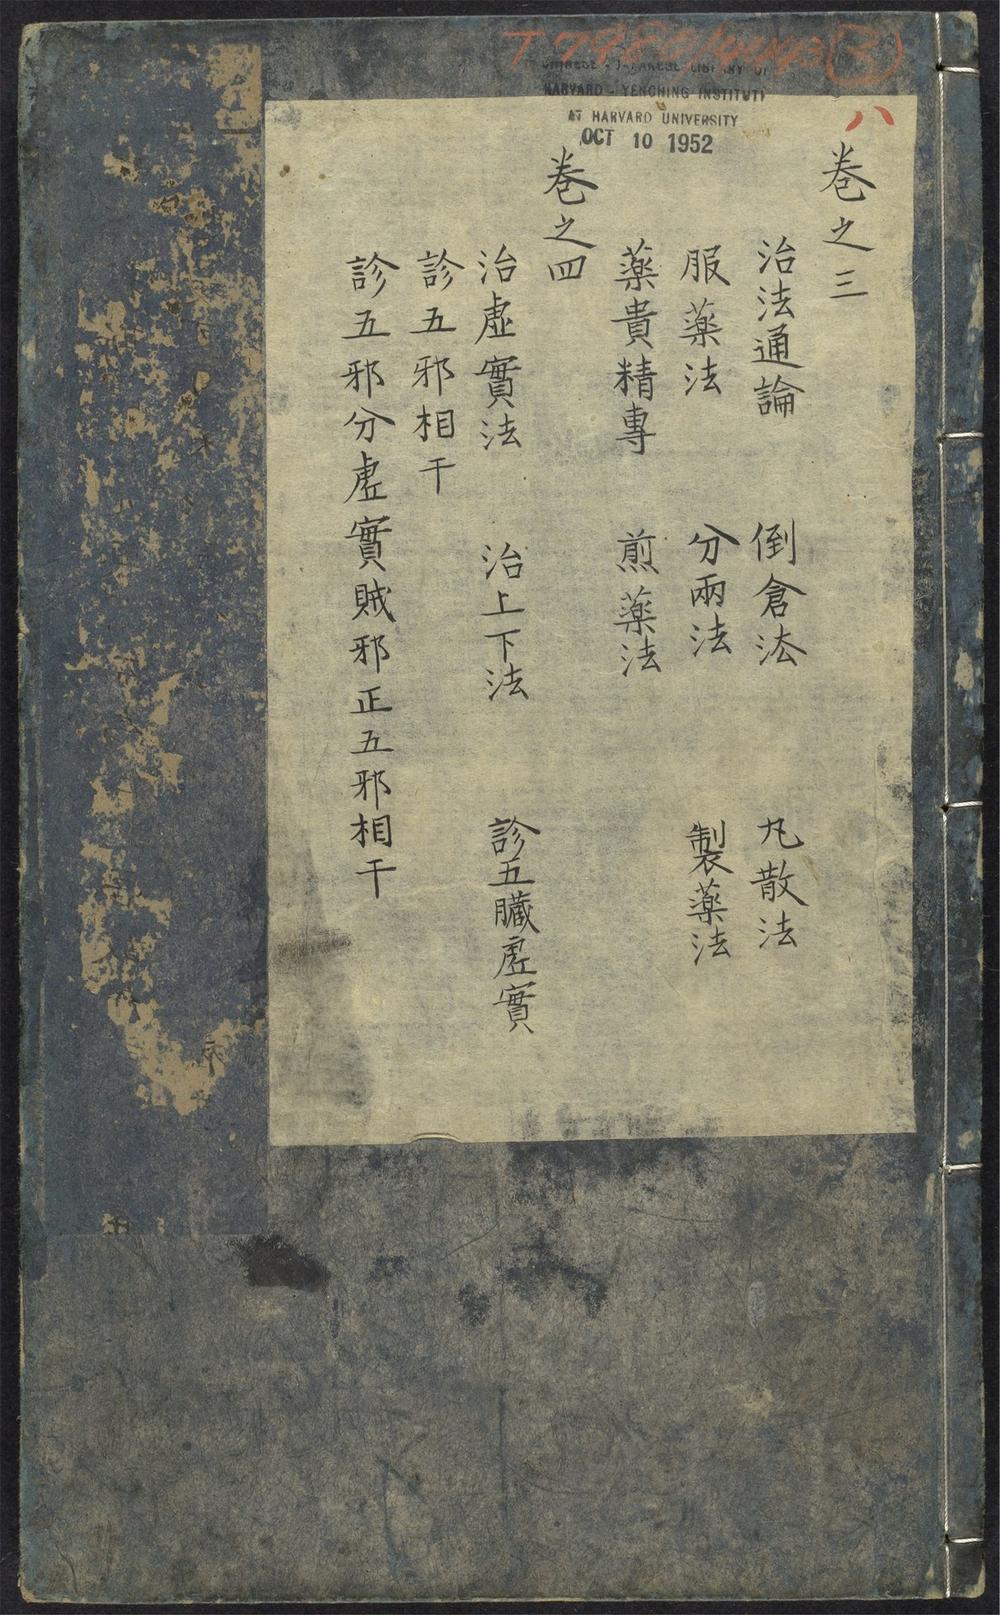 T 7980/4493 (3)
CHINESE - JAPANESE LIBRARY OF
HARVARD - YENCHING INSTITUTE
AT HARVARD UNIVERSITY
OCT 10 1952
八
卷之三
治法通論 倒倉法 丸散法
服藥法 分兩法 製藥法
藥貴精專 煎藥法
卷之四
治虛實法 治上下法 診五臟虛實
診五邪相干
診五邪分虛實賊邪正五邪相干